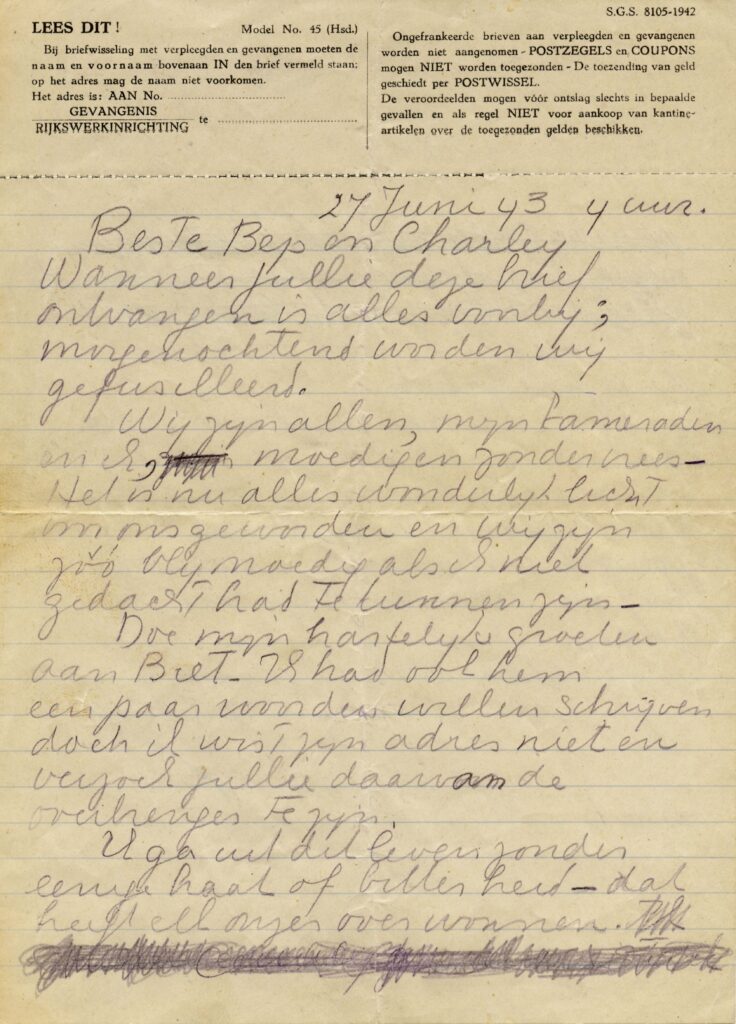 S.G.S. 8105-1942
LEES DIT! Model No. 45 (Hsd.)
Bij briefwisseling met verpleegden en gevangenen moeten de
naam en voornaam bovenaan IN den brief vermeld staan;
op het adres mag de naam niet voorkomen.
Het adres is: AAN No.
GEVANGENIS
RIJKSWERKINRICHTING te
Ongefrankeerde brieven aan verpleegden en gevangenen
worden niet aangenomen - POSTZEGELS en COUPONS
mogen NIET worden toegezonden - De toezending van geld
geschiedt per POSTWISSEL.
De veroordeelden mogen vóór ontslag slechts in bepaalde
gevallen en als regel NIET voor aankoop van kantine-
artikelen over de toegezonden gelden beschikken.
27 Juni 43 4 uur.
Beste Bep en Charley
Wanneer jullie deze brief
ontvangen is alles voorbij;
morgenochtend worden wij
gefusilleerd.
Wij zijn allen, mijn kameraden
en ik, moedig en zonder vrees—
Het is nu alles wonderlijk licht
om ons geworden en wij zijn
zóó blijmoedig als ik niet
gedacht had te kunnen zijn—
Doe mijn hartelijke groeten
aan Biet— Ik had ook hem
een paar woorden willen schrijven
doch ik wist zijn adres niet en
verzoek jullie daarvan de
overbrenger te zijn.
Ik ga uit dit leven zonder
eenige haat of bitterheid—dat
heeft elk onzer overwonnen.